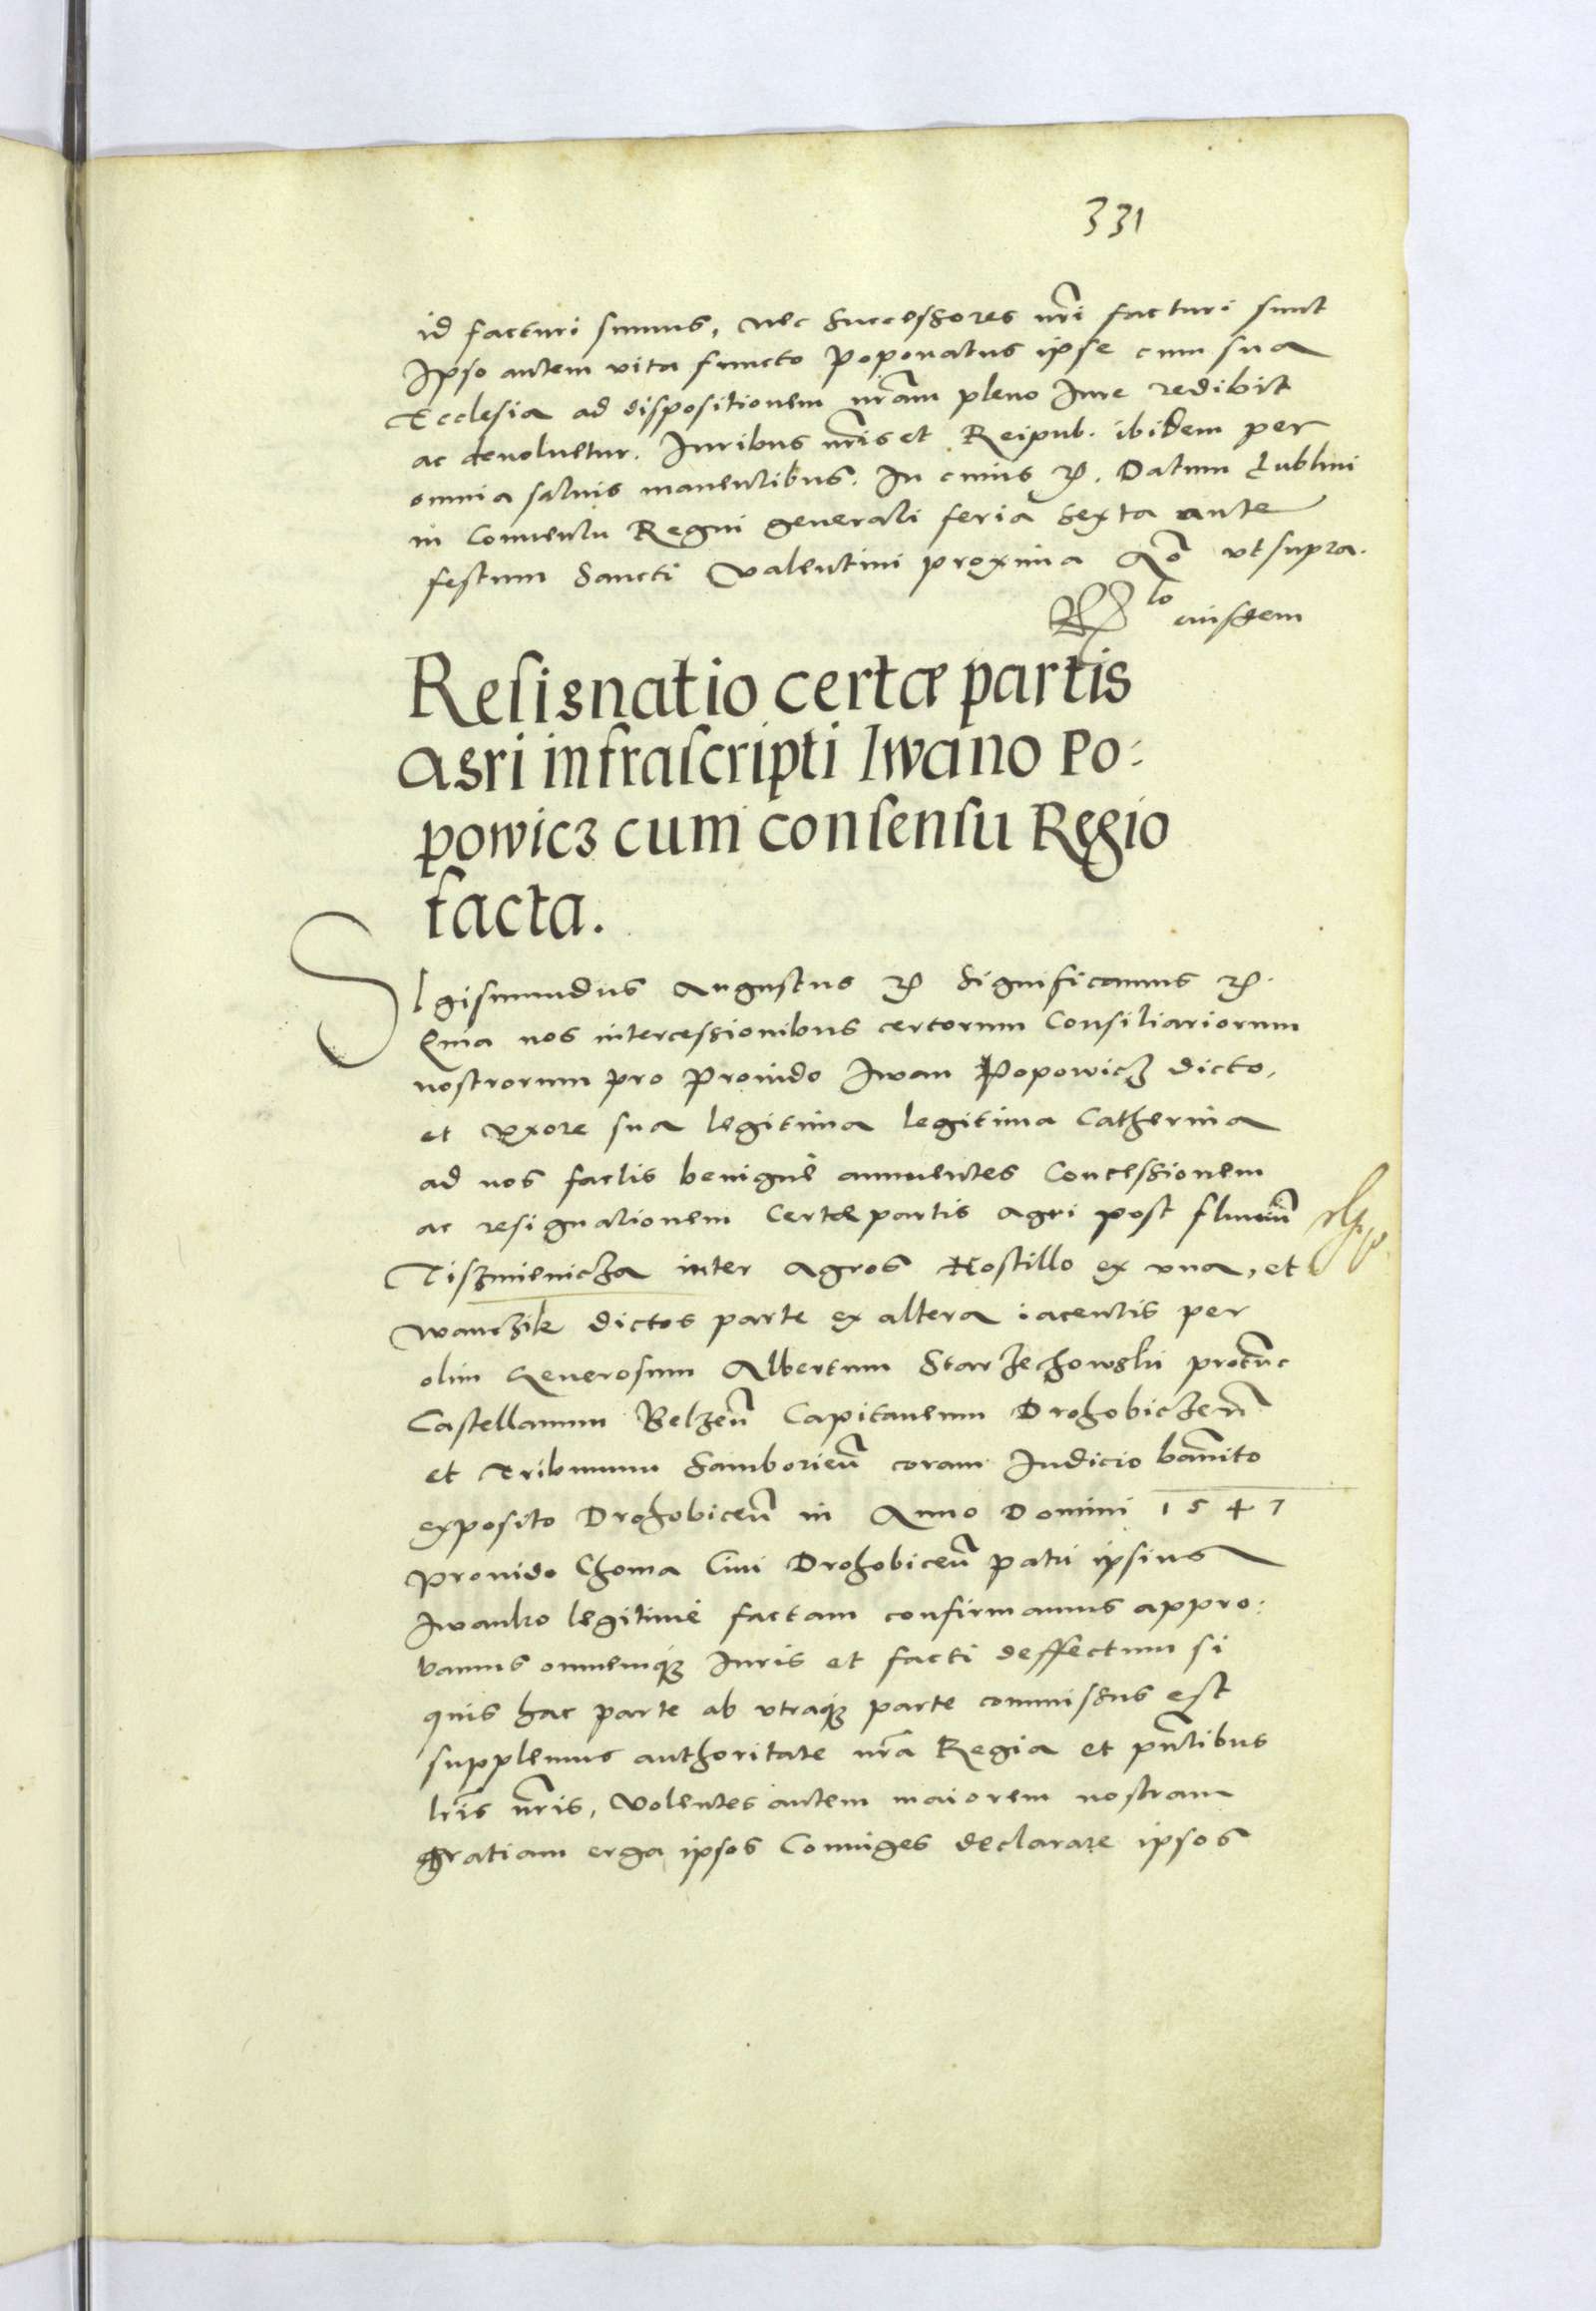 331
id facturi sumus, nec successores nr̃i facturi sunt
Ipso autem vita functo Poponatus ipse cum sua
Ecclesia ad dispositionem nr̃am pleno Iure redibit
ac deuoluetur. Iuribus nr̃is et Reipub. ibidem per
omnia saluis manentibus. In cuius ꝛc. Datum Lublini
in Conuentu Regni generali feria sexta ante
festum Sancti Valentini proxima Aõ vt supra.
Rlo eiusdem
Resignatio certæ partis
Agri infrascripti Iwano Po:
powicz cum consensu Regio
facta.
SIgismundus Augustus ꝛc Significamus ꝛc.
Quia nos intercessionibus certorum Consiliariorum
nostrorum pro Prouido Iwan Popowicz dicto,
et vxore sua legitima legitima Catherina
ad nos factis benignè annuentes Concessionem
ac resignationem Certæ partis agri post fluuiũ
Tiszmienicza inter agros Hostillo ex vna, et
Wanczik dictos parte ex altera iacentis per
olim Generosum Albertum Starzechowski protũc
Castellanum Belzeñ Capitaneum Drohobiczeñ
et Tribunum Samborieñ coram Iudicio bañito
exposito Drohobiceñ in Anno Domini 1547
Prouido Choma Ciui Drohobiceñ patri ipsius
Iwanko legitimè factam confirmamus appro:
bamus omnemqꝫ Iuris et facti deffectum si
quis hac parte ab vtraqꝫ parte commissus est
supplemus authoritate nr̃a Regia et pñtibus
lr̃is nr̃is, Volentes autem maiorem nostram
gratiam erga ipsos Coniuges declarare ipsos